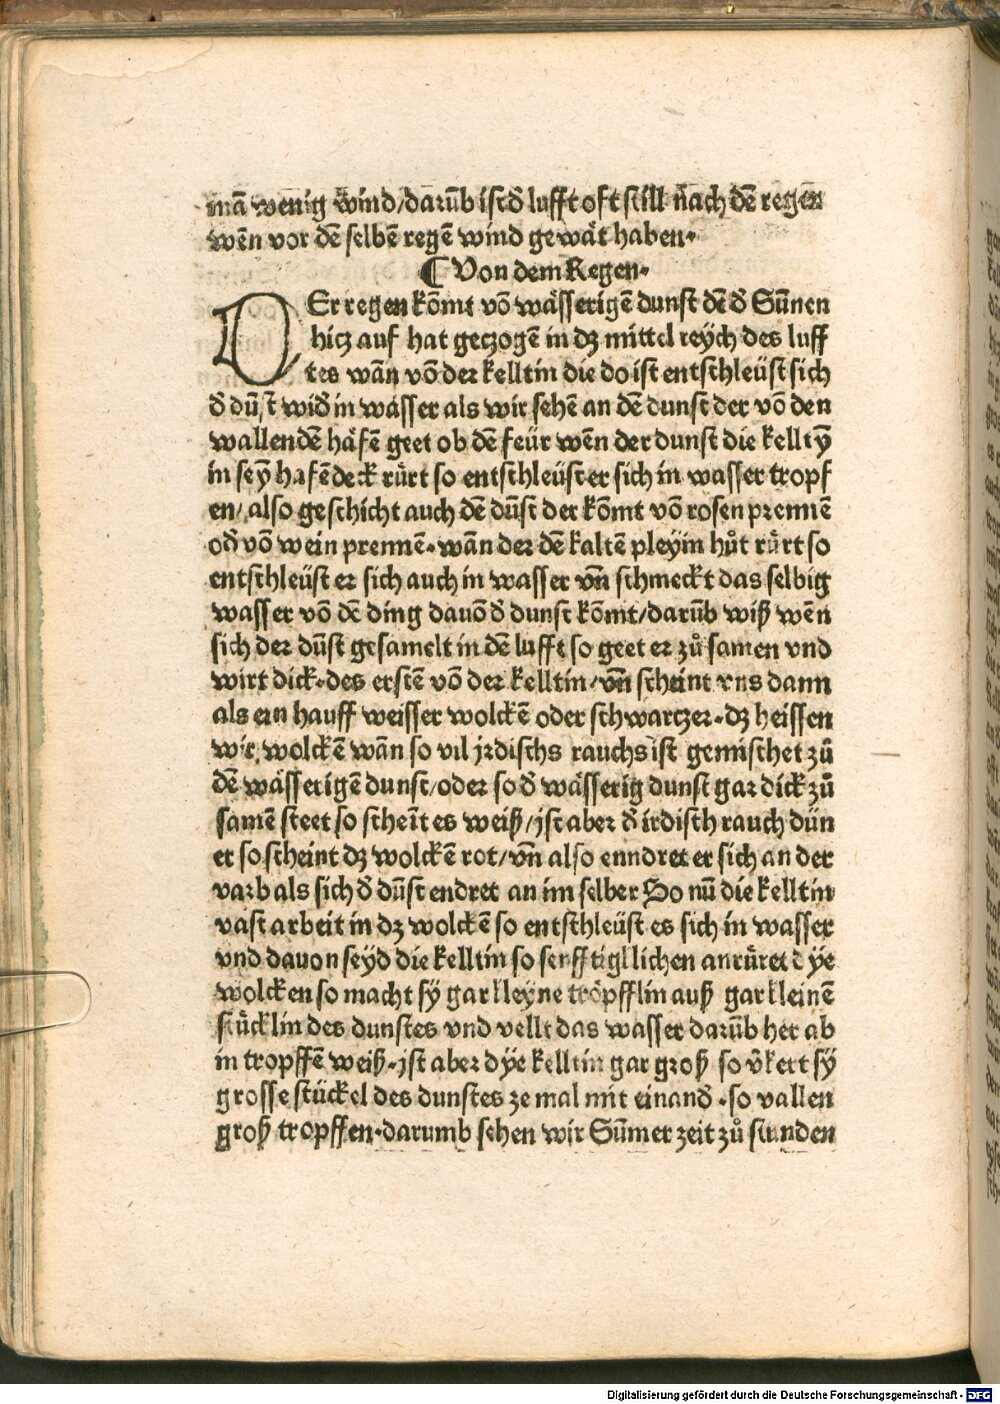 mā wenig wind/darūb ist d̄ lufft oft still nach dē regen
wēn vor dē selbē regē wind gewät haben.
¶ Von dem Regen.
DEr regen kōmt vō wässerigē dunst dē d̄ Sūnen
hitz auf hat getzogē in dz mittel reÿch des luff
tes wān vō der kelltin die do ist entschleüst sich
d̄ dūst wid̄ in wasser als wir sehē an dē dunst der vō den
wallendē häfē geet ob dē feür wēn der dunst die kelltȳ
in seȳ hafēdeck rürt so entschleüst er sich in wasser tropf
en/also geschicht auch dē dūst der kōmt vō rosen prennē
od̄ vō wein prennē.wān der dē kaltē pleÿin hůt rürt so
entschleüst er sich auch in wasser vn̄ schmeckt das selbig
wasser vō dē ding dauō d̄ dunst kōmt/darūb wiß wēn
sich der dūst gesamelt in dē lufft so geet er zů samen vnd
wirt dick.des erstē vō der kelltin/vn̄ scheint vns dann
als ein hauff weisser wolckē oder schwartzer.dz heissen
wir wolckē wān so vil jrdischs rauchs ist gemischet zů
dē wässerigē dunst/oder so d̄ wässerig dunst gar dick zů
samē steet so scheīt es weiß/jst aber d̄ irdisch rauch dün
er so scheint dz wolckē rot/vn̄ also enndret er sich an der
varb als sich d̄ dūst endret an im selber So nū die kelltin
vast arbeit in dz wolckē so entschleüst es sich in wasser
vnd dauon seÿd die kelltin so senfftigllichen anrüret dÿe
wolcken so macht sÿ gar kleyne tröpfflin auß gar kleinē
stücklin des dunstes vnd vellt das wasser darūb her ab
in tropffē weiß.jst aber dÿe kelltin gar groß so v̄kert sÿ
grosse stückel des dunstes ze mal mit einand̄.so vallen
groß tropffen.darumb sehen wir Sūmer zeit zů stunden
Digitalisierung gefördert durch die Deutsche Forschungsgemeinschaft - DFG